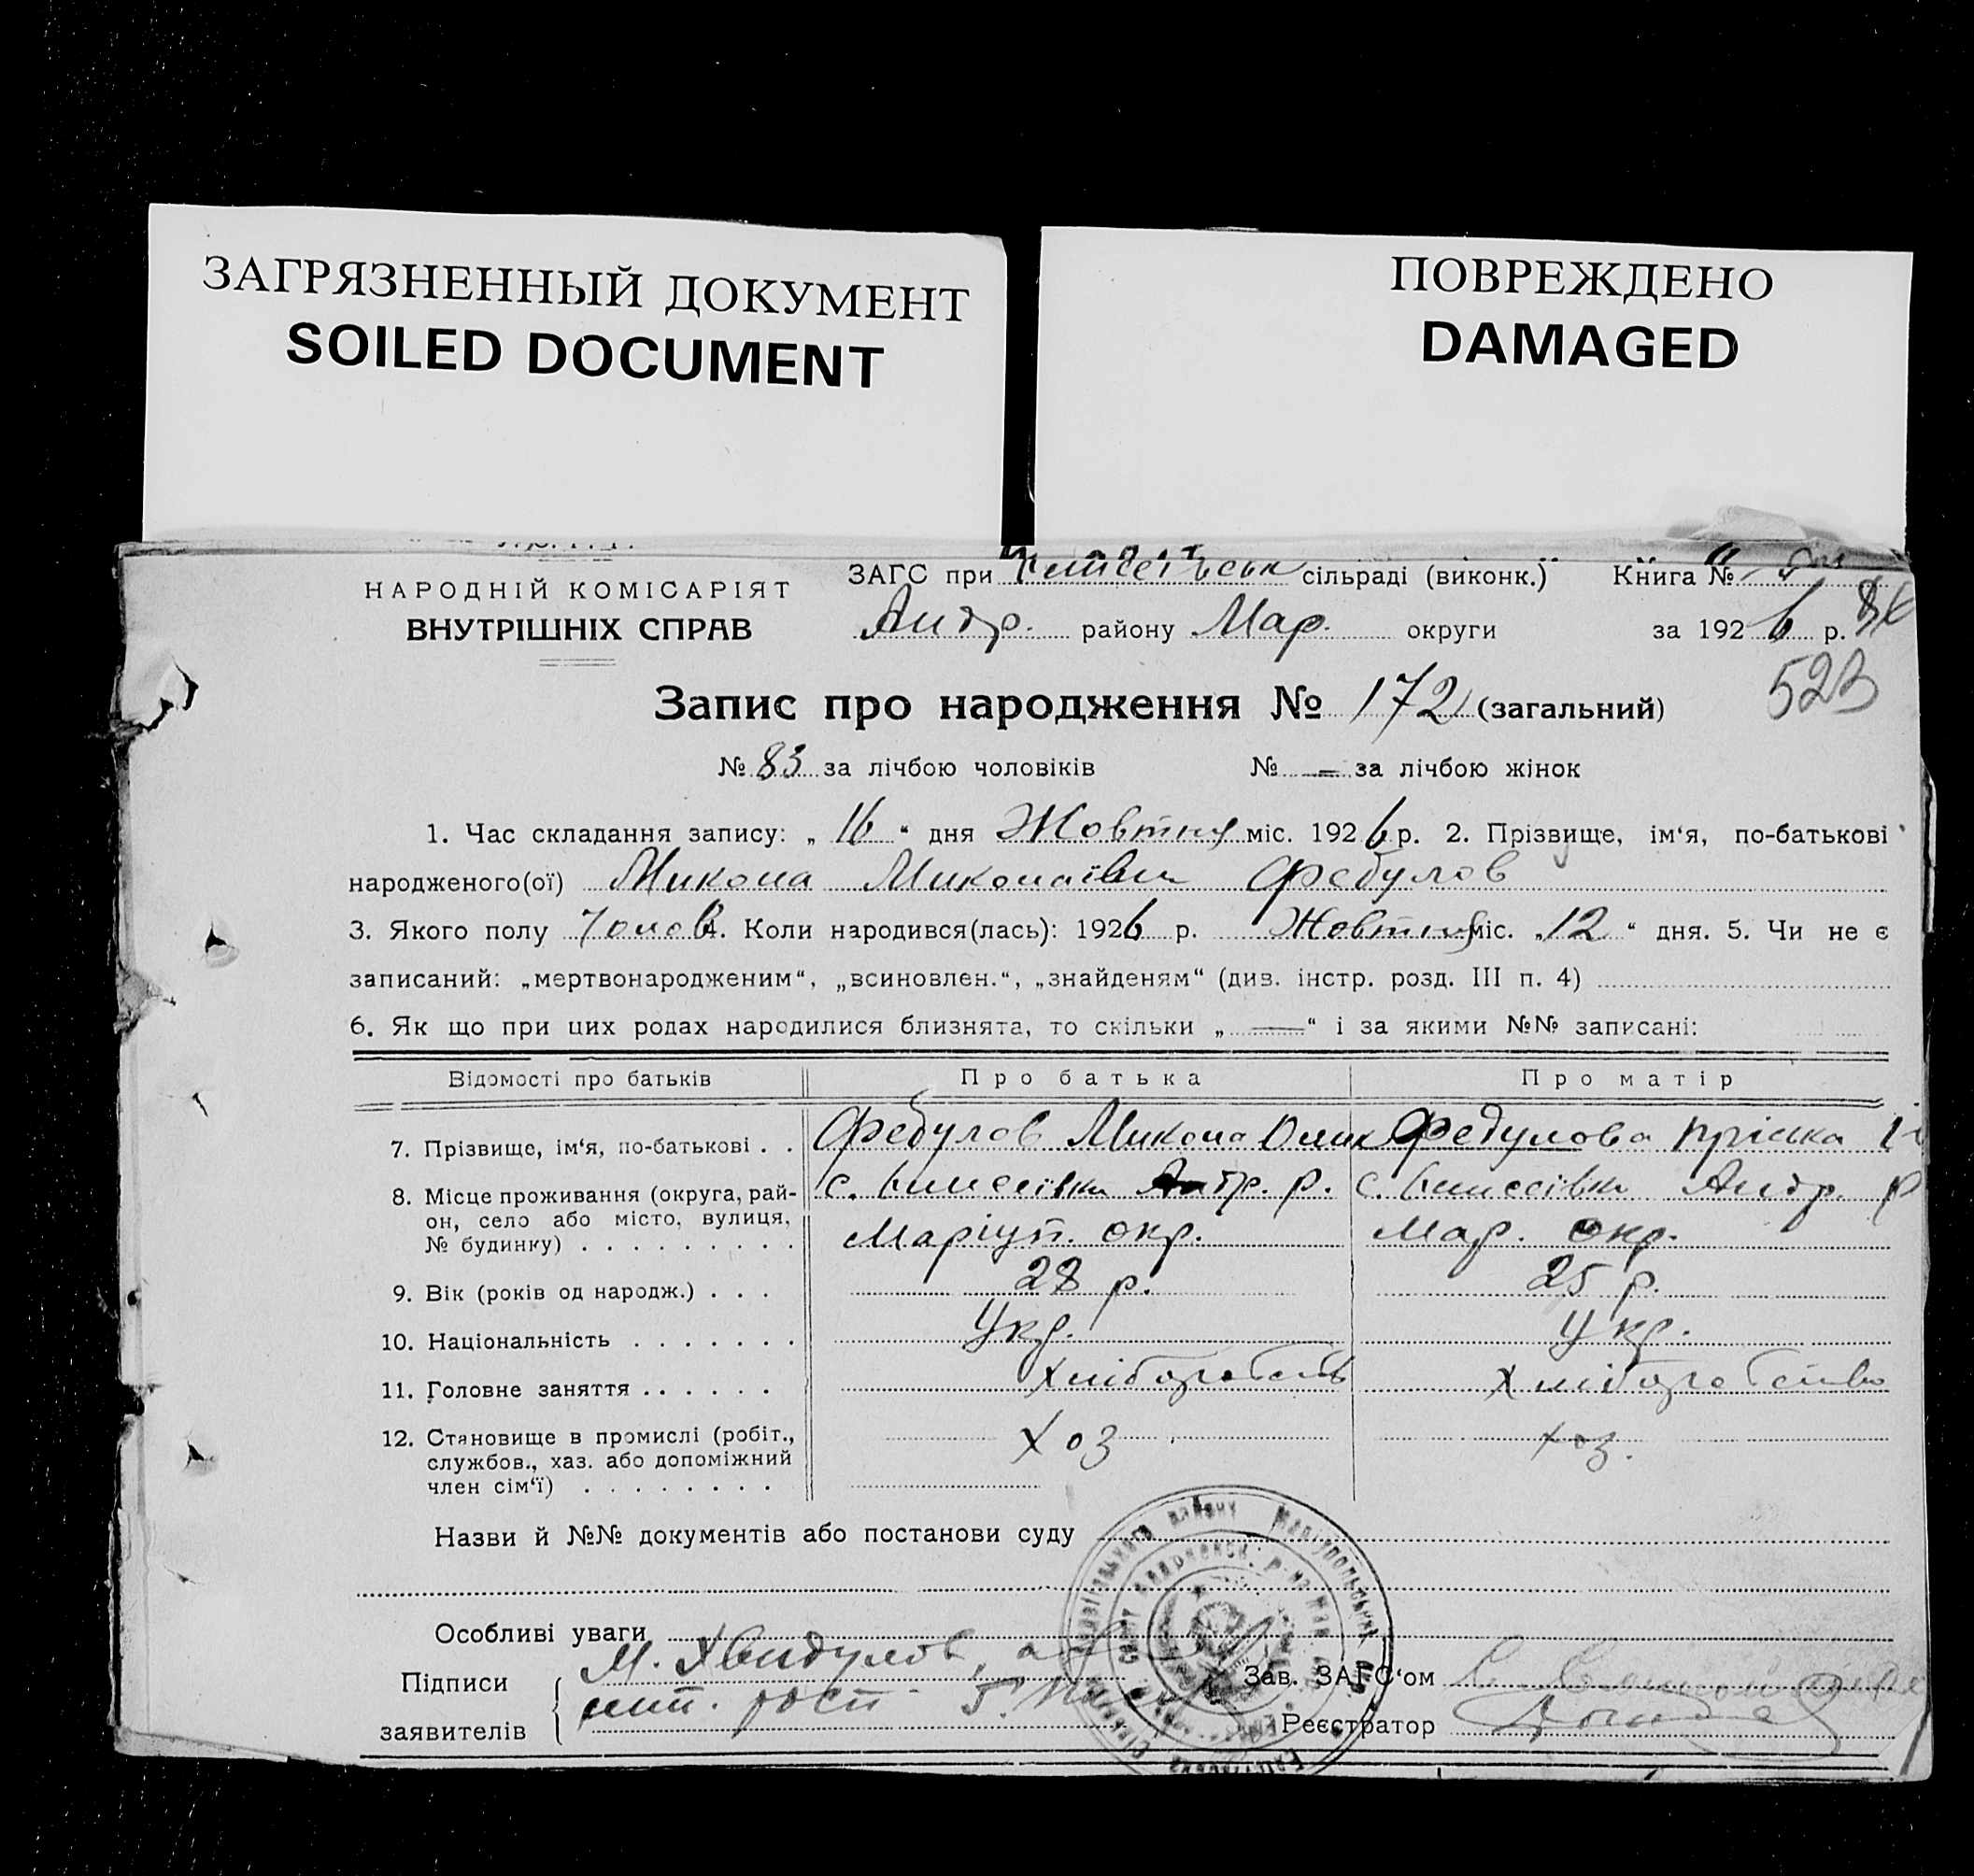 ЗАГРЯЗНЕННЫЙ ДОКУМЕНТ
SOILED DOCUMENT
ПОВРЕЖДЕНО
DAMAGED
НАРОДНІЙ КОМІСАРІЯТ
ВНУТРІШНІХ СПРАВ
ЗАГС при сільраді (виконк.) Книга №
Андр. району Мар. округи за 1926 р.
523
Запис про народження № 172 (загальний)
№ 83 за лічбою чоловіків № = за лічбою жінок
1. Час складання запису: „ 16 “ дня Жовтня міс. 1926 р. 2. Прізвище, ім‘я, по-батькові
народженого(ої) Микола Миколаїв Федулов
3. Якого полу Чолов 4. Коли народився(лась): 1926 р. Жовтня міс. „12“ дня. 5. Чи не є
записаний: „мертвонародженим“, „всиновлен.“, „знайденям“ (див. інстр. розд. III п. 4)
6. Як що при цих родах народилися близнята, то скільки „ — “ і за якими №№ записані:
Відомості про батьків Про батька Про матір
7. Прізвище, ім‘я, по-батькові . . Федулов Микола Федулова Пріська
8. Місце проживання (округа, рай- с. Андр. р. с. Андр. р
он, село або місто, вулиця,
№ будинку) . . . . . . . . . Маріуп. окр. Мар. окр.
9. Вік (років од народж.) . . . 28 р. 25 р.
10. Національність . . . . . . . Укр. Укр.
11. Головне заняття . . . . . . Хліборобств Хліборобство
12. Становище в промислі (робіт., Хоз Хоз.
службов., хаз. або допоміжний
член сім‘ї) . . . . . . . .
Назви й №№ документів або постанови суду
Особливі уваги
Підписи М. Хведулов, Зав. ЗАГС‘ом
заявителів Реєстратор